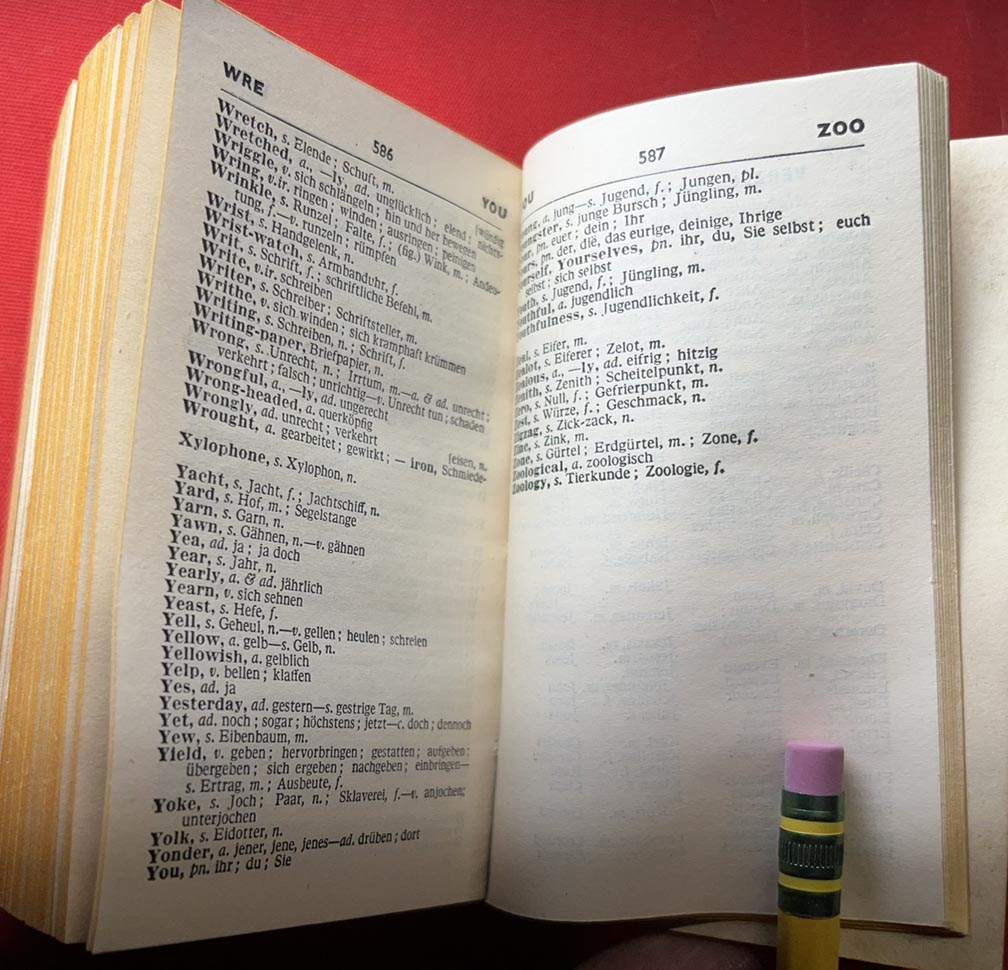 WRE 586 YOU
Wretch, s. Elende; Schuft, m. [würdig
Wretched, a., —ly, ad. unglücklich; elend; nichts-
Wriggle, v. sich schlängeln; hin und her bewegen
Wring, v.ir. ringen; winden; ausringen; peinigen
Wrinkle, s. Runzel; Falte, f.; (fig.) Wink, m.; Andeu-
tung, f.—v. runzeln; rümpfen
Wrist, s. Handgelenk, n.
Wrist-watch, s. Armbanduhr, f.
Writ, s. Schrift, f.; schriftliche Befehl, m.
Write, v.ir. schreiben
Writer, s. Schreiber; Schriftsteller, m.
Writhe, v. sich winden; sich krampfhaft krümmen
Writing, s. Schreiben, n.; Schrift, f.
Writing-paper, Briefpapier, n.
Wrong, s. Unrecht, n.; Irrtum, m.—a. & ad. unrecht;
verkehrt; falsch; unrichtig—v. Unrecht tun; schaden
Wrongful, a., —ly, ad. ungerecht
Wrong-headed, a. querköpfig
Wrongly, ad. unrecht; verkehrt [eisen, n.
Wrought, a. gearbeitet; gewirkt; — iron, Schmiede-
Xylophone, s. Xylophon, n.
Yacht, s. Jacht, f.; Jachtschiff, n.
Yard, s. Hof, m.; Segelstange
Yarn, s. Garn, n.
Yawn, s. Gähnen, n.—v. gähnen
Yea, ad. ja; ja doch
Year, s. Jahr, n.
Yearly, a. & ad. jährlich
Yearn, v. sich sehnen
Yeast, s. Hefe, f.
Yell, s. Geheul, n.—v. gellen; heulen; schreien
Yellow, a. gelb—s. Gelb, n.
Yellowish, a. gelblich
Yelp, v. bellen; klaffen
Yes, ad. ja
Yesterday, ad. gestern—s. gestrige Tag, m.
Yet, ad. noch; sogar; höchstens; jetzt—c. doch; dennoch
Yew, s. Eibenbaum, m.
Yield, v. geben; hervorbringen; gestatten; aufgeben;
übergeben; sich ergeben; nachgeben; einbringen—
s. Ertrag, m.; Ausbeute, f.
Yoke, s. Joch; Paar, n.; Sklaverei, f.—v. anjochen;
unterjochen
Yolk, s. Eidotter, n.
Yonder, a. jener, jene, jenes—ad. drüben; dort
You, pn. ihr; du; Sie
OU 587 ZOO
ung, a. jung—s. Jugend, f.; Jungen, pl.
ngster, s. junge Bursch; Jüngling, m.
ur, pn. euer; dein; Ihr
urs, pn. der, die, das eurige, deinige, Ihrige
urself, Yourselves, pn. ihr, du, Sie selbst; euch
selbst; sich selbst
outh, s. Jugend, f.; Jüngling, m.
outhful, a. jugendlich
outhfulness, s. Jugendlichkeit, f.
eal, s. Eifer, m.
ealot, s. Eiferer; Zelot, m.
ealous, a., —ly, ad. eifrig; hitzig
enith, s. Zenith; Scheitelpunkt, n.
ero, s. Null, f.; Gefrierpunkt, m.
est, s. Würze, f.; Geschmack, n.
igzag, s. Zick-zack, n.
inc, s. Zink, m.
one, s. Gürtel; Erdgürtel, m.; Zone, f.
Zoological, a. zoologisch
Zoology, s. Tierkunde; Zoologie, f.